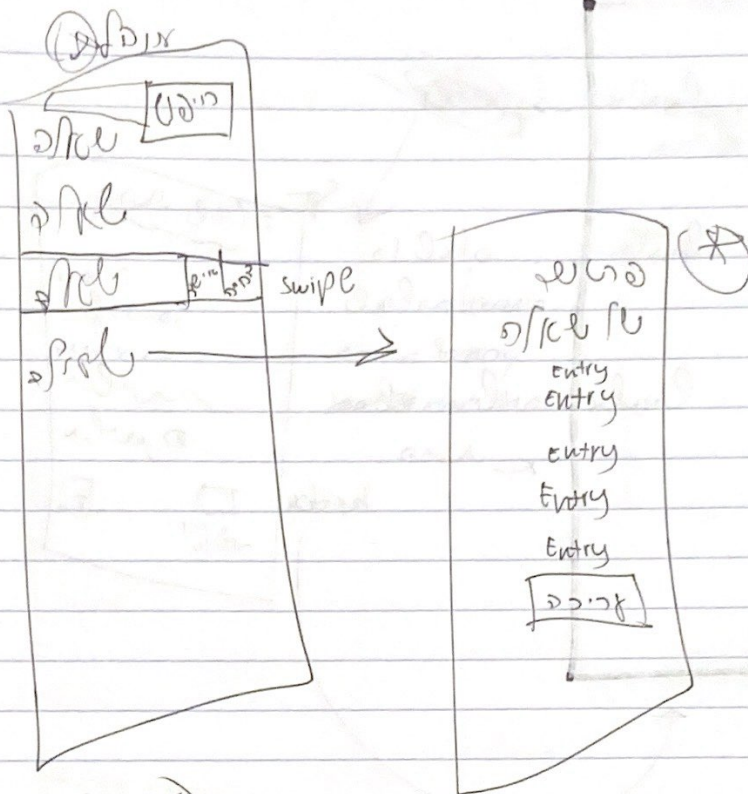 חיפוש
שאלה
שאלה
שאלה
swipe
שאלה
פרטים
של שאלה
Entry
Entry
Entry
Entry
Entry
עריכה